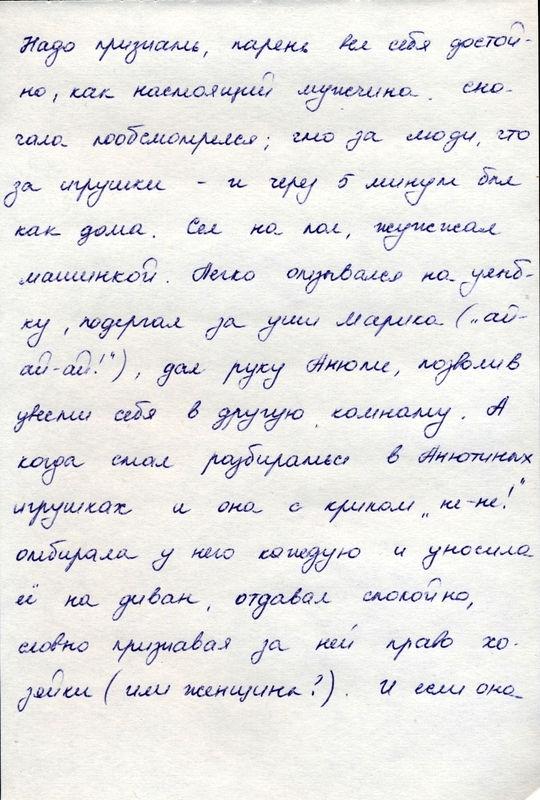 Надо признать, парень вел себя достой-
но, как настоящий мужчина. Сна-
чала пообсмотрелся; что за люди, что
за игрушки – и через 5 минут был
как дома. Сел на пол, жужжал
машинкой. Легко отзывался на улыб-
ку, подергал за уши Марика („ай-
ай-ай!"), дал руку Анюте, позволив
увести себя в другую комнату. А
когда стал разбираться в Анютиных
игрушках и она с криком „не-не!"
отбирала у него каждую и уносила
её на диван, отдавал спокойно,
словно признавая за ней право хо-
зяйки (или женщины?). И если она